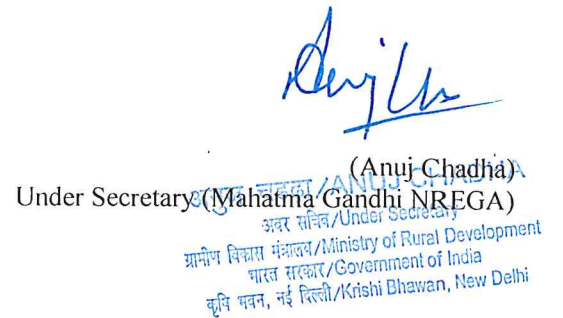 (Anuj Chadha)
Under Secretary (Mahatma Gandhi NREGA)
अनुज चड्ढा/ANUJ CHADHA
अवर सचिव/Under Secretary
ग्रामीण विकास मंत्रालय/Ministry of Rural Development
भारत सरकार/Government of India
कृषि भवन, नई दिल्ली/Krishi Bhawan, New Delhi